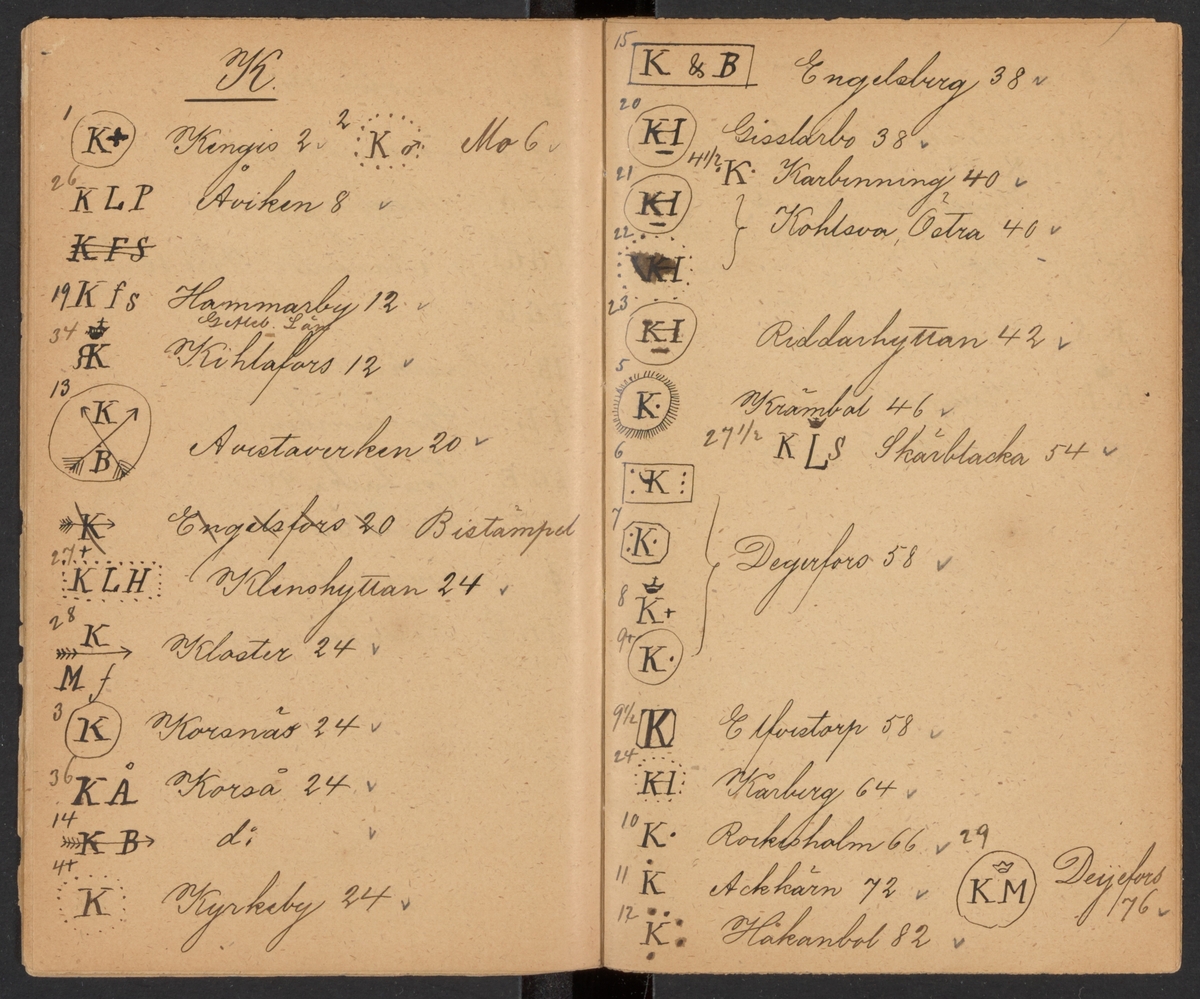 K.
1 K+ Kengis 2 2 K ♂ Mo 6
26 K L P Åviken 8
K F S
19 K f s Hammarby 12
34 K Kihlafors 12
13 K B Avestaverken 20
K Engelsfors 20 Bistämpel
27+ K L H Klenshyttan 24
28 K Kloster 24
M f
3 K Korsnäs 24
36 K Å Korså 24
14 K B d:
4+ K Kyrkeby 24
15 K & B Engelsberg 38
20 KH Gisslarbo 38
4 1/2 K. Karbenning 40
21 KH Kohlsva, Östra ? 40
22 KH
23 KH Riddarhyttan 42
5 K. Krämbol 46
27 1/2 K L s Skärblacka 54
6 : K :
7 : K. Degerfors 58
8 K+
9+ K.
9 1/2 K Elfvestorp 58
24 KH Kårberg 64
10 K. Rockesholm 66
29 K M Dejefors 76
11 K Ackkärn 72
12 K: Håkanbol 82